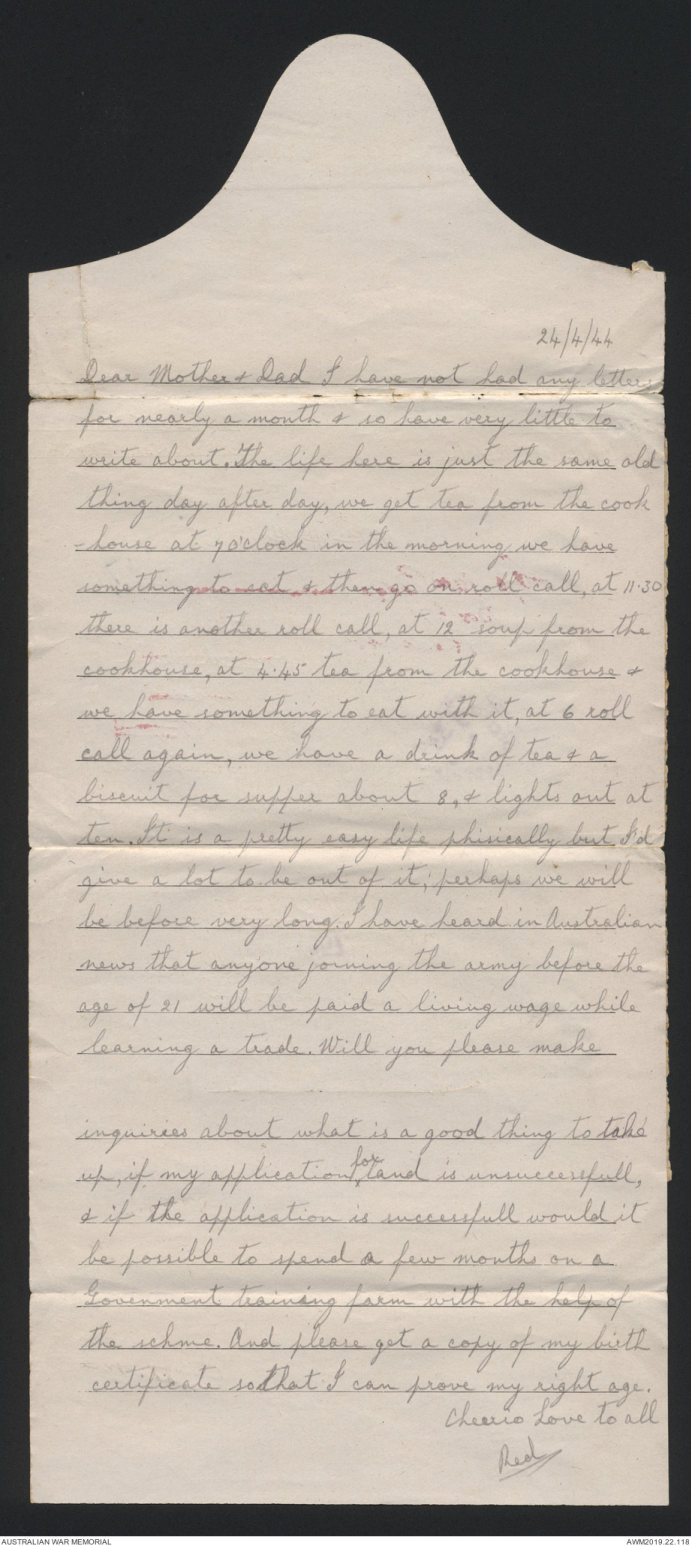 24/4/44
Dear Mother & Dad I have not had any letters
for nearly a month & so have very little to
write about. The life here is just the same old
thing day after day, we get tea from the cook
-house at 7 o'clock in the morning we have
something to eat & then go on roll call, at 11.30
there is another roll call, at 12 soup from the
cookhouse, at 4.45 tea from the cookhouse &
we have something to eat with it, at 6 roll
call again, we have a drink of tea & a
biscuit for supper about 8, & lights out at
ten. It is a pretty easy life phisically but I'd
give a lot to be out of it; perhaps we will
be before very long. I have heard in Australian
news that anyone joining the army before the
age of 21 will be paid a living wage while
learning a trade. Will you please make
inquiries about what is a good thing to take
up, if my application for land is unsuccessfull,
& if the application is successfull would it
be possible to spend a few months on a
Govenment training farm with the help of
the schme. And please get a copy of my birth
certificate so that I can prove my right age.
Cheerio Love to all
Red
AUSTRALIAN WAR MEMORIAL
AWM2019.22.118